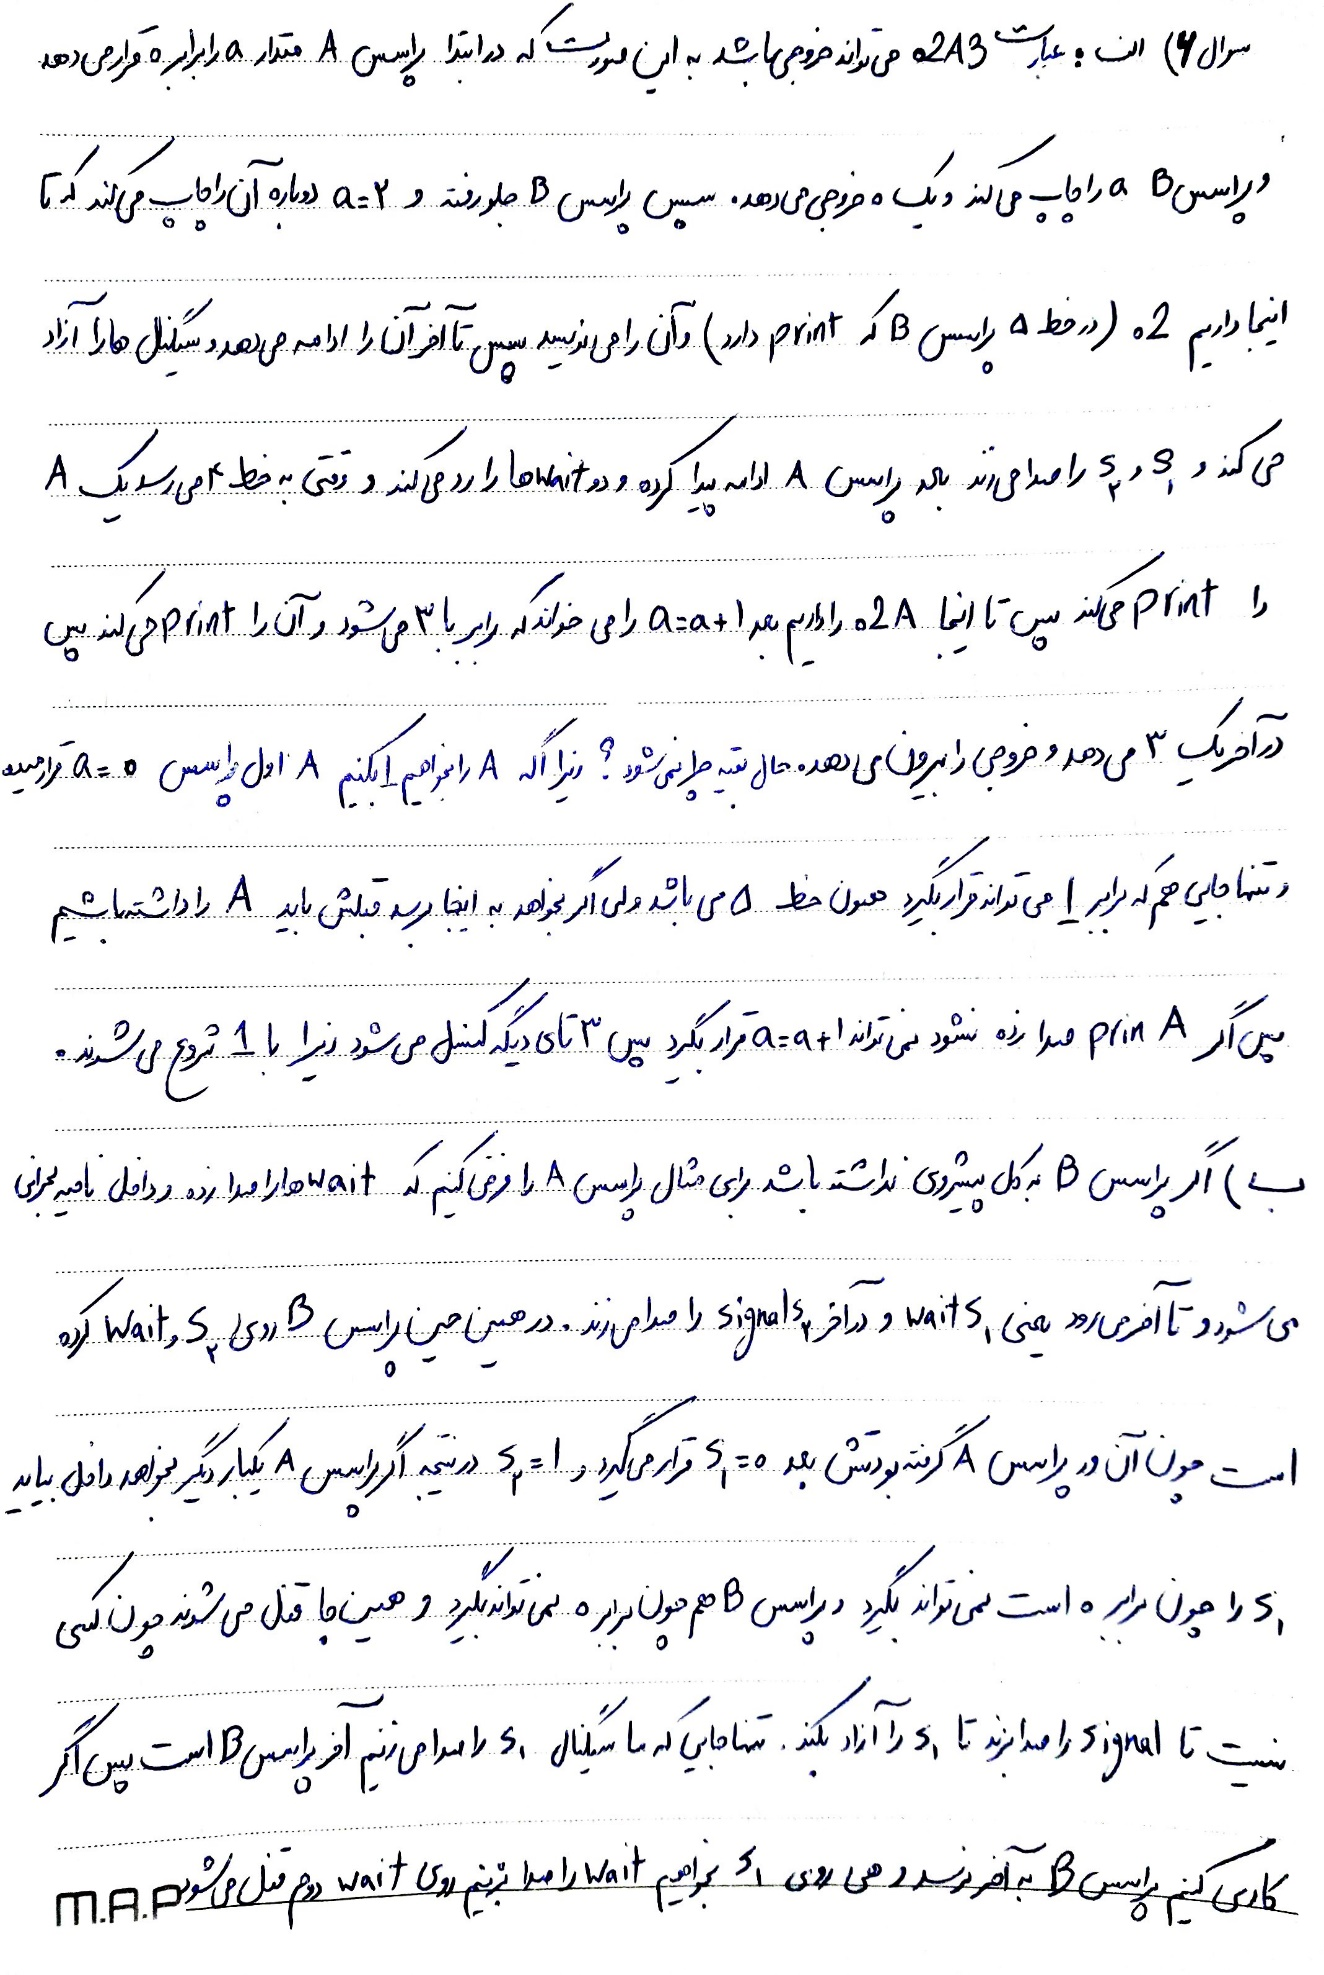 سوال ۶) الف : عبارت 02A3 می تواند خروجی باشد به این صورت که در ابتدا پراسس A مقدار a را برابر ۰ قرار می دهد
و پراسس B a را چاپ می کند و یک ۰ خروجی می دهد. سپس پراسس B جلو رفته و a=۲ دوباره آن را چاپ می کند که تا
اینجا داریم 02 (در خط ۵ پراسس B که print دارد) و آن را می نویسید سپس تا آخر آن را ادامه می دهد و سیگنال ها را آزاد
می کند و S₁ و S₂ را صدا می زند بعد پراسس A ادامه پیدا کرده و دو wait ها را رد می کند و وقتی به خط ۴ می رسد یک A
را print می کند پس تا اینجا 02A را داریم بعد a=a+1 را می خواند که برابر با ۳ می شود و آن را print می کند پس
در آخر یک ۳ می دهد و خروجی را بیرون می دهد. حال بقیه چرا نمی شود؟ زیرا اگه A را بخواهیم 1 بکنیم A اول پراسس a=0 قرار میده
و تنها جایی هم که برابر 1 می تواند قرار بگیرد همون خط ۵ می باشد ولی اگر بخواهد به اینجا برسد قبلش باید A را داشته باشیم
پس اگر prin A صدا زده نشود نمی تواند a=a+1 قرار بگیرد پس ۳ تای دیگه کنسل می شود زیرا با 1 شروع می شوند.
ب) اگر پراسس B به کل پیشروی نداشته باشد برای مثال پراسس A را فرض کنیم که wait ها را صدا زده و داخل ناحیه بحرانی
می شود و تا آخر می رود یعنی wait S₁ و در آخر signal S₂ را صدا می زند. در همین حین پراسس B روی S₂ و wait کرده
است چون آن در پراسس A گرفته بودتش بعد S₁=0 قرار می گیرد و S₂=1 در نتیجه اگر پراسس A یکبار دیگر بخواهد داخل بیاید
S₁ را چون برابر ۰ است نمی تواند بگیرد و پراسس B هم چون برابر ۰ نمی تواند بگیرد و همین جا قفل می شوند چون کسی
نیست تا signal را صدا بزند تا S₁ را آزاد بکند. تنها جایی که ما سیگنال S₁ را صدا می زنیم آخر پراسس B است پس اگر
کاری کنیم پراسس B به آخر نرسد و هی روی S₁ بخواهیم wait را صدا بزنیم روی wait دوم قفل می شود
M.A.P